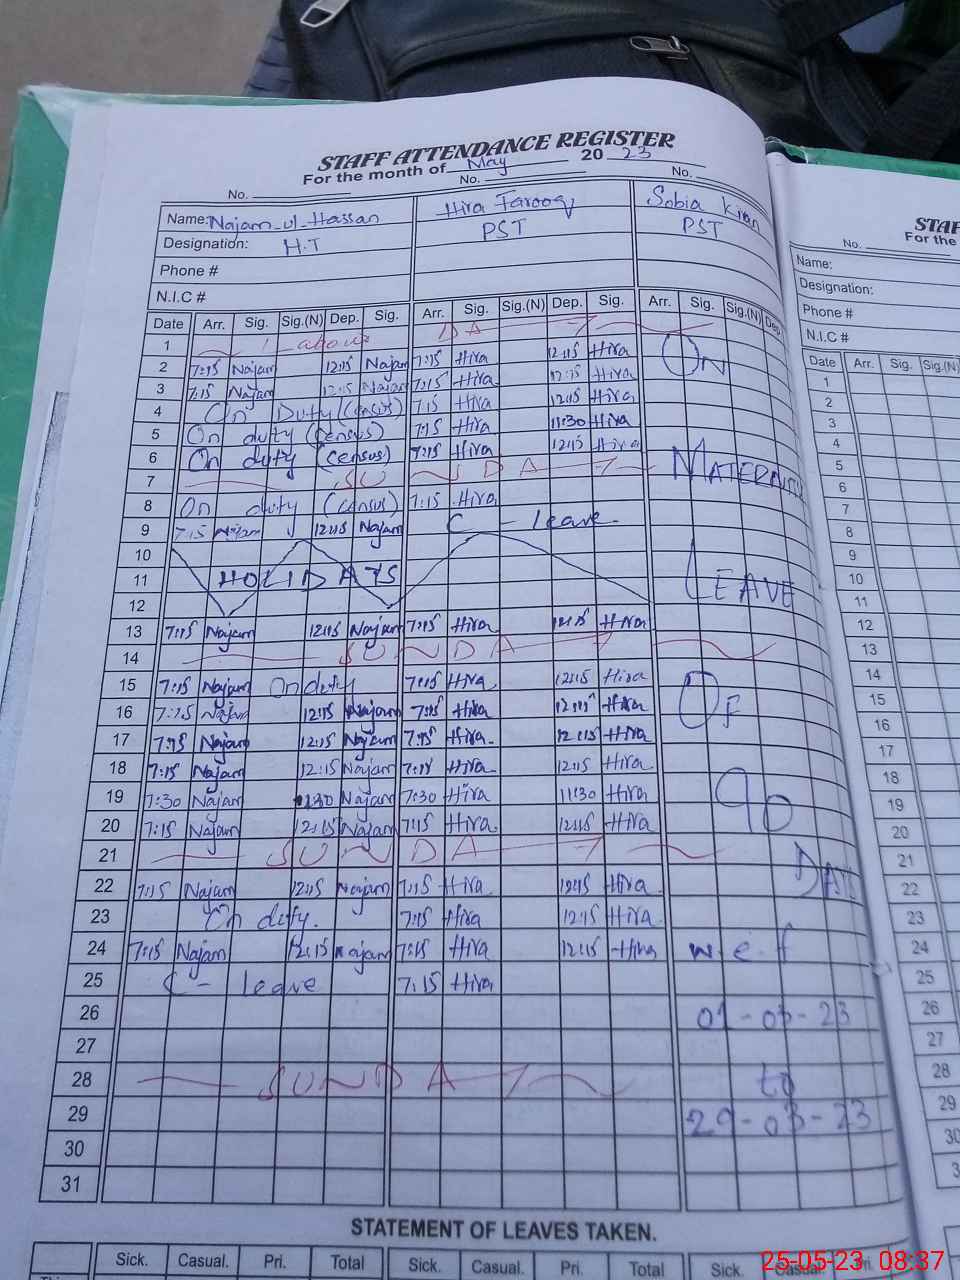 STAFF ATTENDANCE REGISTER
For the month of May 20 23
No. No. No.
Name: Najam-ul-Hassan Hira Farooq Sobia Kiran
Designation: H.T PST PST
Phone #
N.I.C #
Date Arr. Sig. Sig.(N) Dep. Sig. Arr. Sig. Sig.(N) Dep. Sig. Arr. Sig. Sig.(N) Dep.
1 DAY
2 7:15 Najam 12:15 Najam 7:15 Hira 12:15 Hira ON
3 7:15 Najam 12:15 Najam 7:15 Hira 12:15 Hira
4 On Duty (Census) 7:15 Hira 12:15 Hira
5 On duty (Census) 7:15 Hira 11:30 Hira
6 On duty (Census) 7:15 Hira 12:15 Hira
7 SUNDAY MATERNITY
8 On duty (Census) 7:15 Hira
9 7:15 Najam 12:15 Najam C - leave
10
11 HOLIDAYS LEAVE
12
13 7:15 Najam 12:15 Najam 7:15 Hira 12:15 Hira
14 SUNDAY
15 7:15 Najam On duty 7:15 Hira 12:15 Hira
16 7:15 Najam 12:15 Najam 7:15 Hira 12:15 Hira OF
17 7:15 Najam 12:15 Najam 7:15 Hira 12:15 Hira
18 7:15 Najam 12:15 Najam 7:15 Hira 12:15 Hira
19 7:30 Najam 11:30 Najam 7:30 Hira 11:30 Hira 90
20 7:15 Najam 12:15 Najam 7:15 Hira 12:15 Hira
21 SUNDAY
22 7:15 Najam 12:15 Najam 7:15 Hira 12:15 Hira DAYS
23 On duty. 7:15 Hira 12:15 Hira
24 7:15 Najam 12:15 Najam 7:15 Hira 12:15 Hira w.e.f
25 C- leave 7:15 Hira
26 01-03-23
27
28 SUNDAY to
29 29-03-23
30
31
STATEMENT OF LEAVES TAKEN.
Sick. Casual. Pri. Total Sick. Casual. Pri. Total Sick. Casual. Pri.
This
STAF
For the
No.
Name:
Designation:
Phone #
N.I.C #
Date Arr. Sig. Sig.(N)
1
2
3
4
5
6
7
8
9
10
11
12
13
14
15
16
17
18
19
20
21
22
23
24
25
26
27
28
29
30
3
25-05-23 08:37